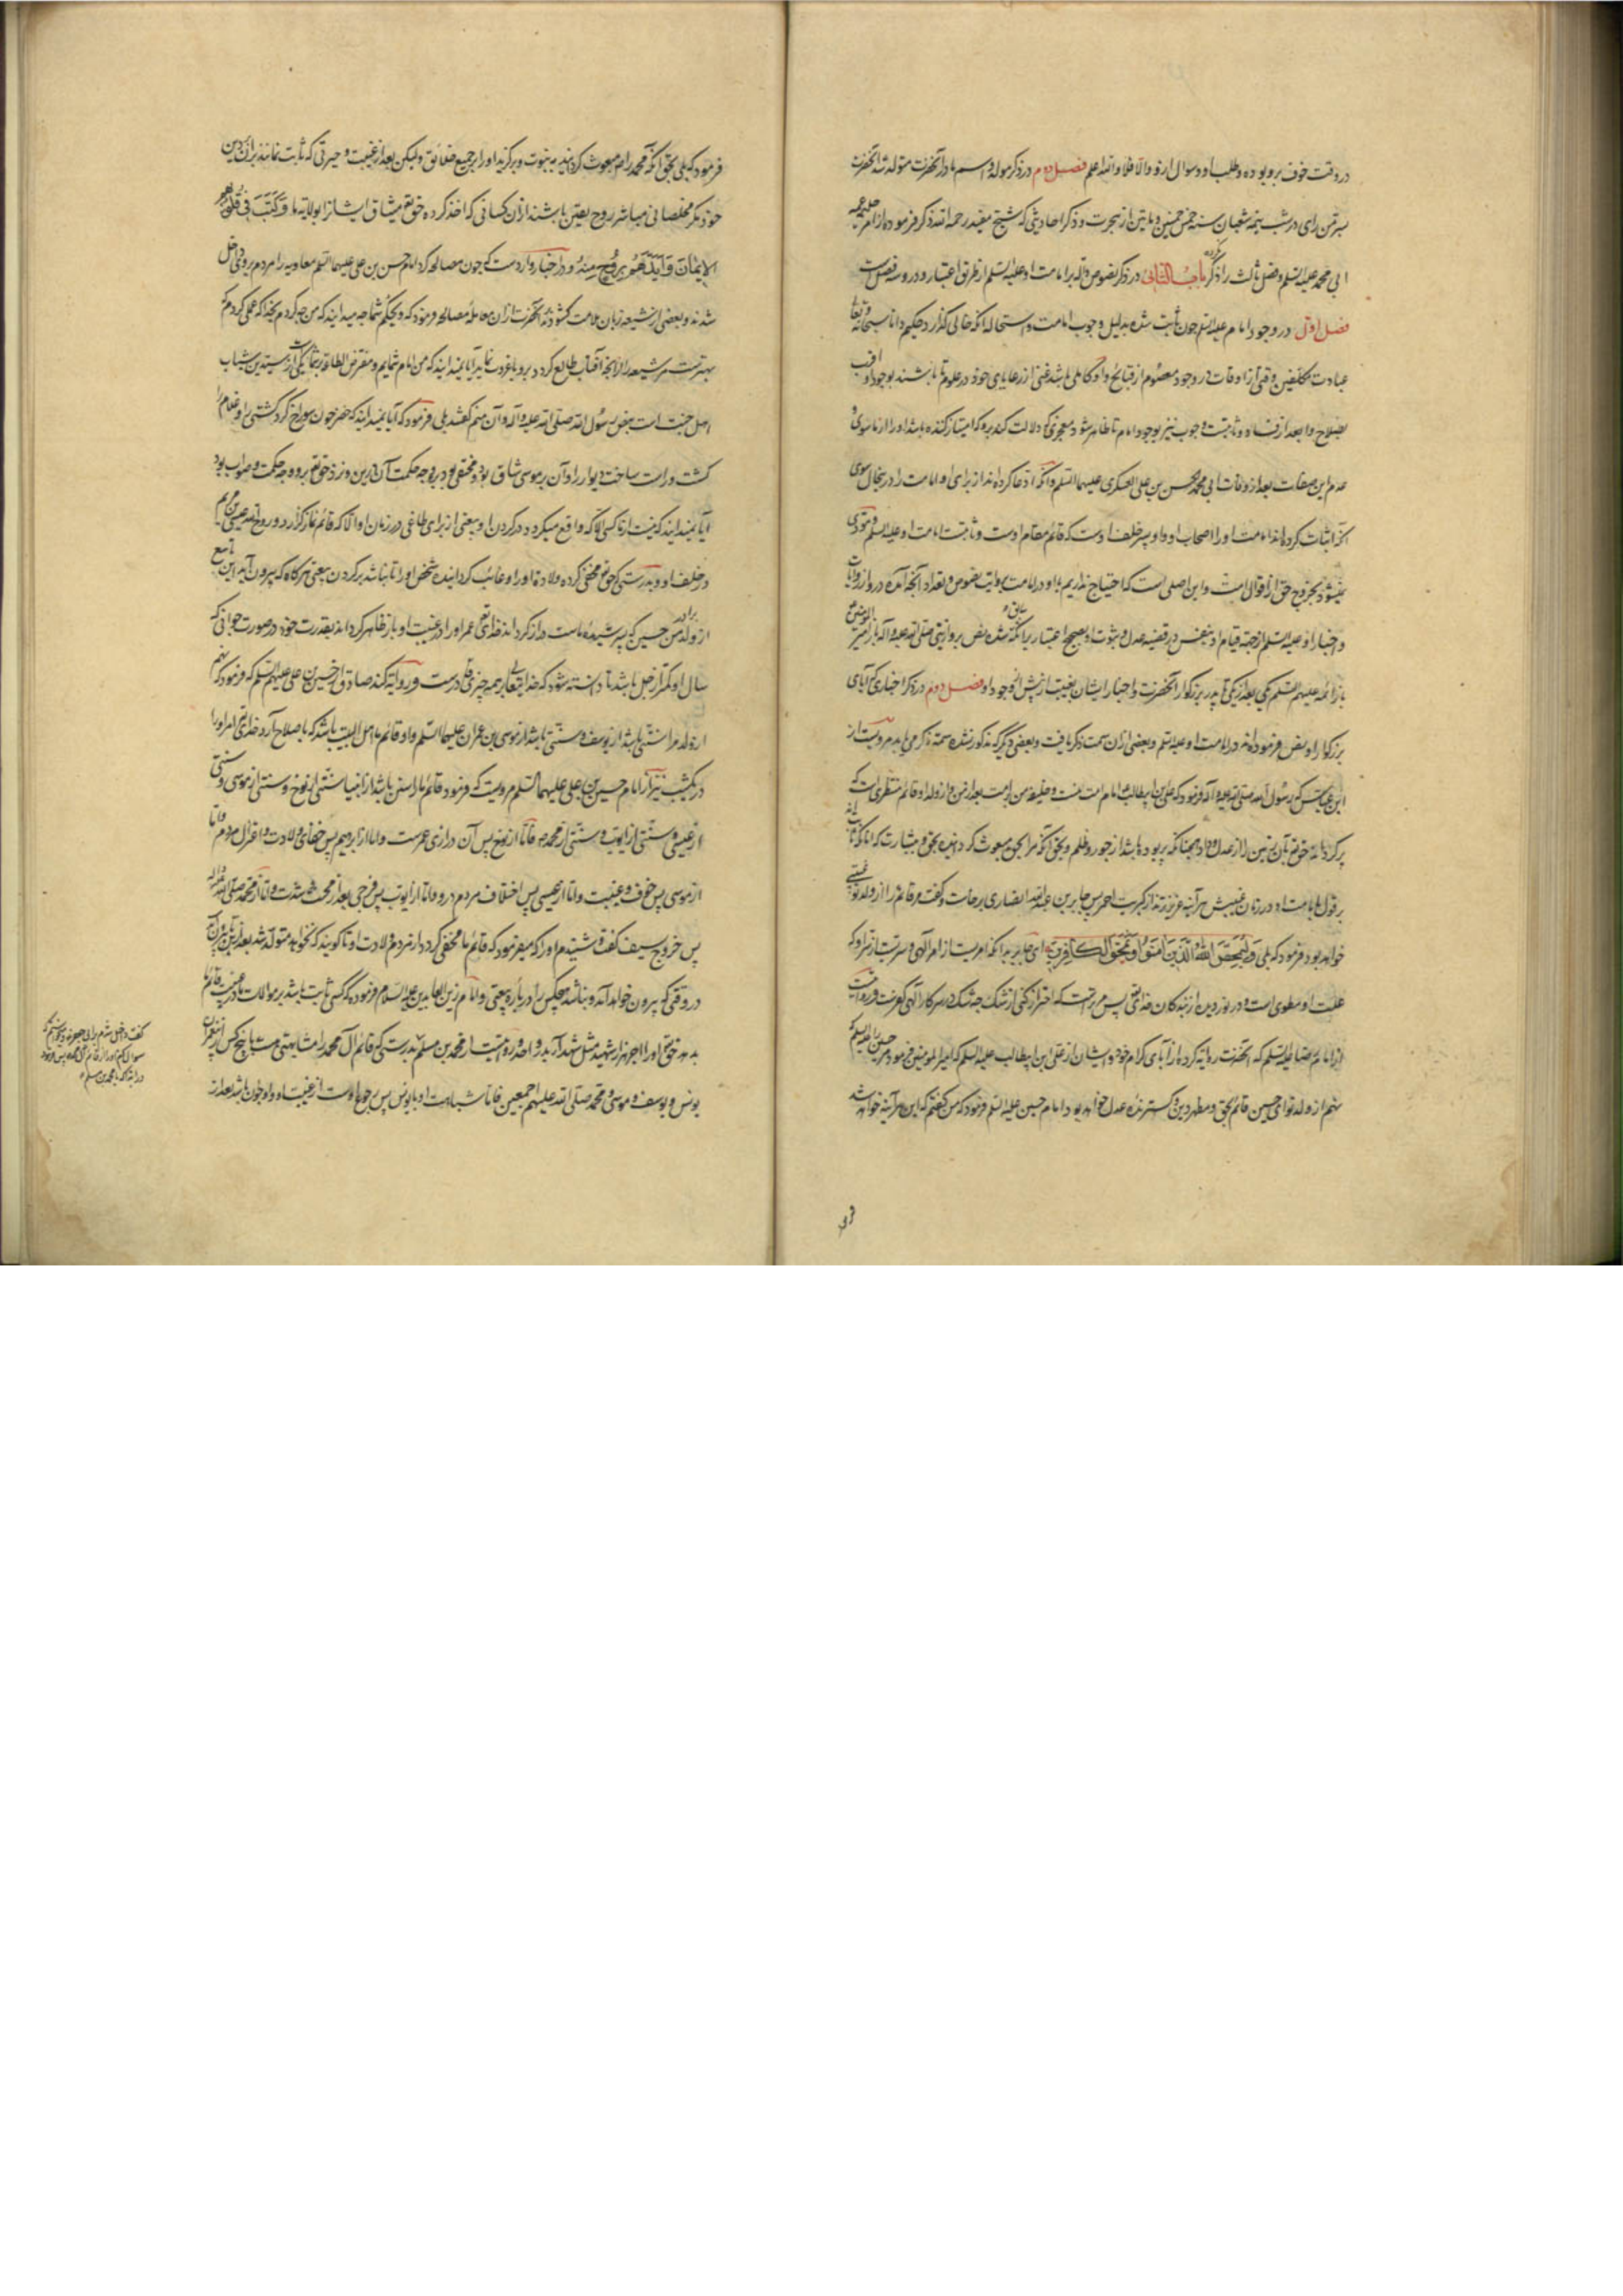 در وقت خوف برو بوده و طلب او و سوال ازو و الا فلا والله اعلم فصل دوم در ذکر مولد و اسم مادر آنحضرت متولد شد آنحضرت
بسر من رای در شب نیمه شعبان سنه خمس و خمسین و مایتین از هجرت و ذکر احادیثی که شیخ مفید رحمه الله ذکر فرموده از امر
ابی محمد علیه السلم و فصل ثالث را ذکر کرده باب الثانی در ذکر نصوص داله بر امامت او علیه السلم از طریق اعتبار و درو سه فصل است
فصل اول در وجود امام علیه السلم چون ثابت شده بدلیل وجوب امامت و استحاله آنکه خالی گذارد حکیم دانا سبحانه و تعالی
عبادت مکلفین وقتی از اوقات از وجود معصوم از قبایح و او کاملی باشد غنی از رعایای خود در علوم تا باشند بوجود او اقرب
بصلاح و ابعد از فساد و ثابتست وجوب نیز بوجود امام تا ظاهر شود معجزی که دلالت کند برو که امتیاز کننده باشد او را از ماسوی و
عدم این صفات بعد از وفات ابی محمد حسن بن علی العسکری علیهما السلم و آنکه ادعا کرده‌اند از برای او امامت را در ینحال سوی
آنکه اثبات کرده‌اند امامت او را اصحاب او و او پسر خلف اوست که قائم مقام اوست و ثابتست امامت او علیه السلم و مودی
نمیشود بخروج حق از اقوال امت و این اصلی است که احتیاج نداریم با او در امامت بروایت نصوص و تعداد آنچه آمده درو از روایات
و اخبار او علیه السلم از جهة قیام او بنفس در قضیه عدل و ثبوت او بصحیح اعتبار برآنکه سابق شده نص برو از نبی صلی الله علیه و آله باز امیر المؤمنین
باز ائمه علیهم السلم یکی بعد از یکی تا پدر بزرگوار آنحضرت و اخبار ایشان بغیبت از پیش از وجود او فصل دوم در ذکر اخباری که آبای
بزرگوار او نص فرموده‌اند در امامت او علیه السلم و بعضی ازان سمت ذکر یافت و بعضی دیگر که مذکور نشده سمة ذکر می یابد مرویست از
ابن عباس که رسول الله صلی الله علیه و آله فرمود که علی بن ابیطالب امام امت منست و خلیفه من بر امت بعد از من و از ولد او قائم منتظری است که
پر گرداند حق تع بآن زمین را از عدل و داد همچنانکه پر بوده باشد از جور و ظلم و بحق آنکه مرا بحق مبعوث گردانیده بحق و بشارت که آنانکه ثابت اند
بر قول بامامت او در زمان غیبتش هر آینه عزیزترند از کبریت احمر پس جابر بن عبدالله انصاری برخاست و گفت مر قائم را از ولد تو غیبتی
خواهد بود فرمود که بلی وَلِيُمَحِّصَ اللَّهُ الَّذِينَ آمَنُوا وَيَمْحَقَ الْكَافِرِينَ ای جابر بدانکه امریست از امر الهی و سریست از سر او که
علت او مطوی است و در نوردیده از بندگان خدای تع پس بر تست که احتراز کنی از شک چه شک در سر کار الهی کفرست و روایت
از امام رضا علیه السلم که آنحضرت روایه کرده از آبای کرام خود و ایشان از علی ابن ابیطالب علیه السلم که امیر المومنین فرمود مر حسین را علیه السلم که
نهم از ولد تو ای حسین قائم بحق و مظهر دین و گسترنده عدل خواهد بود امام حسین علیه السلم فرمود که من گفتم که این هر آینه خواهد شد
فرمود که بلی بحق آنکه محمد را ص مبعوث گردانید به نبوت و برگزید او را بر جمیع خلائق ولیکن بعد از غیبت و حیرتی که ثابت نمانند بران دین
خود مگر مخلصانی مباشر روح یقین باشند ازان کسانی که اخذ کرده حق تع میثاق ایشانرا بولایه ما وَكَتَبَ فِي قُلُوبِهِمُ
الْإِيمَانَ وَأَيَّدَهُمْ بِرُوحٍ مِنْهُ و در اخبار واردست که چون مصالحه کرد امام حسن بن علی علیهما السلم معاویه را مردم بروی داخل
شدند و بعضی از شیعه زبان ملامت گشودند آنحضرت را ازان معامله مصالحه فرمود که ویحکم شما چه میدانید که من چه کردم بخدا که عملی کردم که
بهترست مر شیعه را از آنچه آفتاب طالع گردد برو یا غروب نماید آیا نمیدانید که من امام شمایم و مفترض الطاعة بر شما و یکی از سیدین شباب
اهل جنت است بنص رسول الله صلی الله علیه و آله و آن منم گفتند بلی فرمود که آیا نمیدانید که خضر چون سوراخ کرد کشتی را و غلام را
کشت و راست ساخت دیوار را و آن بر موسی شاق بود و مخفی بود برو وجه حکمت آن درین و نزد حق تع برو وجه حکمت و صواب بود
آیا نمیدانید که نیست از ما کسی الا که واقع میگردد در گردن او بیعتی از برای طاغی در زمان او الا که قائم نماز گذارد روح الله عیسی بن مریم
در خلف او و بدرستی که حق تع مخفی کرده ولادة او را و غائب گردانیده شخص او را تا نباشد بر گردن بیعتی هرگاه که بیرون آید این تاسع
از ولد برادر من حسین که پسر سیده اماست دراز گرداند خدای تع عمر او را در غیبت او باز ظاهر گرداند بقدرت خود در صورت جوانی که
سال او کمتر از چهل باشد تا دانسته شود که خدایتعالی بر همه چیزی قادرست و روایة کند صادق از حسین بن علی علیهم السلم که فرمود که نهم
از ولد مرا سنتی باشد از یوسف و سنتی باشد از موسی بن عمران علیهما السلم و او قائم ما اهل البیت باشد که باصلاح آرد خدای تع امر او را
در یکشب نیز از امام حسین بن علی علیهما السلم مرویست که فرمود قائم ما را سنن باشد از انبیا سنتی از نوح و سنتی از موسی و سنتی
از عیسی و سنتی از ایوب و سنتی از محمد ص فاما از نوح پس آن درازی عمرست و اما از ابرهیم پس خفای ولادت و اعتزال مردم و اما
از موسی پس خوف و غیبت و اما از عیسی پس اختلاف مردم درو و اما از ایوب پس فرجی بعد از محنت و شدت و اما از محمد صلی الله علیه و آله
پس خروج بسیف گفت شنیدم او را که میفرمود که قائم ما مخفی گردد از مردم ولادت او تا گویند که نخواهد متولد شد بعد ازین تا بیرون آید
در وقتی که بیرون خواهد آمد و نباشد هیچکس را در باره بیعتی و امام زین العابدین علیه السلام فرموده که کسی ثابت باشد بر موالات ما در غیبت قائم ما
بدهد حق تع او را اجر هزار شهید مثل شهدای بدر و احد و روایتست از محمد بن مسلم بدرستی که قائم آل محمد را مشابهتی هست با پنج کس از پیغمبران
یونس و یوسف و موسی و محمد صلی الله علیهم اجمعین فاما شباهت او با یونس پس رجوع اوست از غیبت او و او جوان باشد بعد از
گفت داخل شدم بر ابی جعفر و میخواستم که
سوال کنم او را از قائم آل محمد پس فرمود
در ابتدا که یا محمد بن مسلم